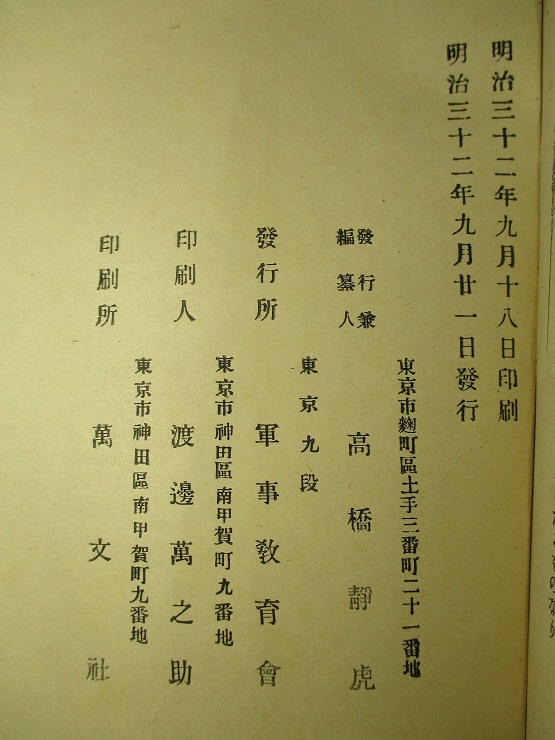 明治三十二年九月十八日印刷
明治三十二年九月廿一日發行
東京市麹町區土手三番町二十一番地
發行兼
編纂人
高橋靜虎
東京九段
發行所
軍事敎育會
東京市神田區南甲賀町九番地
印刷人
渡邊萬之助
東京市神田區南甲賀町九番地
印刷所
萬文社